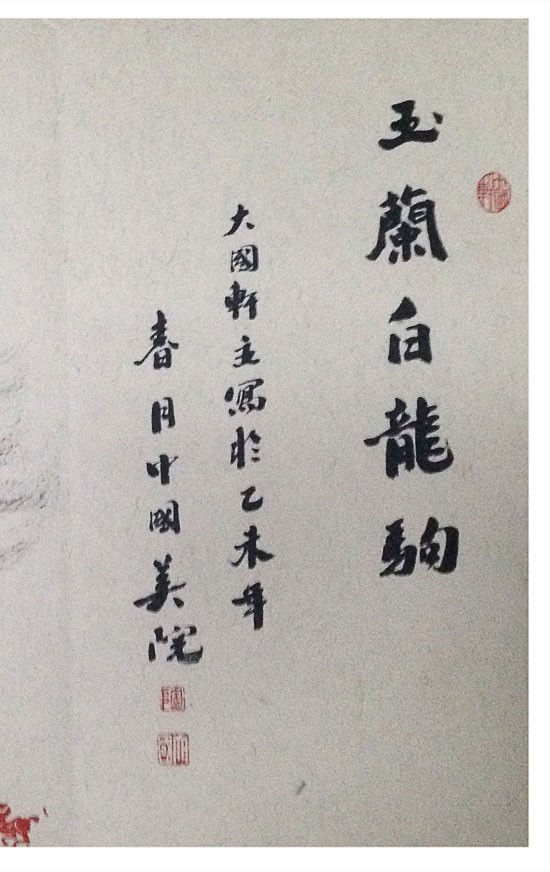 玉蘭白龍駒
大國軒主寫於乙未年
春月中國美院